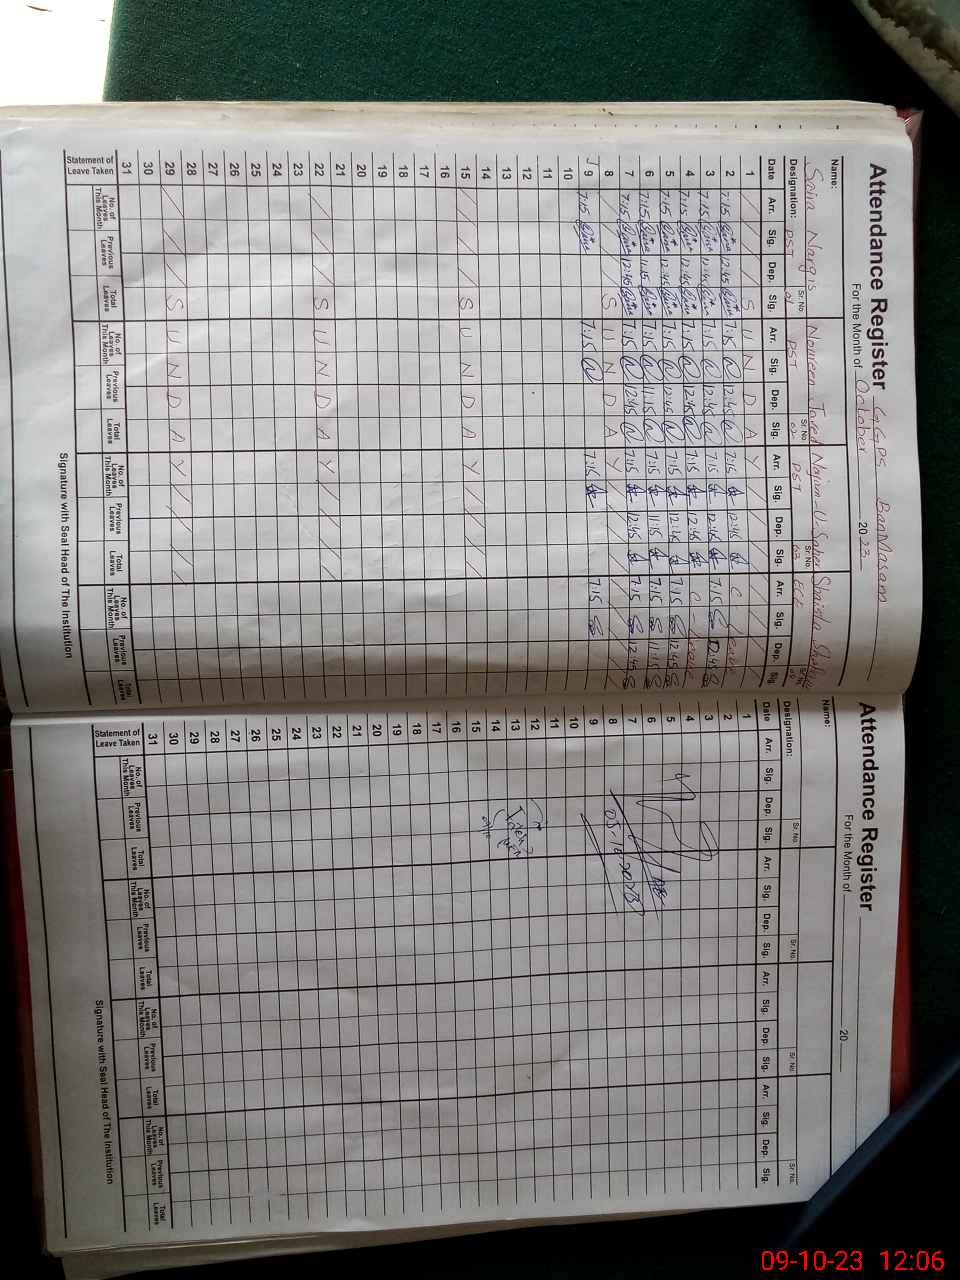 Attendance Register GGPS BanMasam
For the Month of October 2023
Name: Saira Nargis Noureen Javed Najam-U-Saher Shaista Shaheen
Designation: PST Sr. No. 01 PST Sr. No. 02 PST Sr. No. 03 Sr. No.
Date Arr. Sig. Dep. Sig. Arr. Sig. Dep. Sig. Arr. Sig. Dep. Sig. Arr. Sig. Dep. Sig.
1 S U N D A Y
2 7:15 12:45 7:15 12:45 7:15 12:45 C Leave
3 7:15 12:45 7:15 12:45 7:15 12:45 7:15 12:45
4 7:15 12:45 7:15 12:45 7:15 12:45 C Leave
5 7:15 12:45 7:15 12:45 7:15 12:45 7:15 12:45
6 7:15 11:15 7:15 11:15 7:15 11:15 7:15 11:15
7 7:15 12:45 7:15 12:45 7:15 12:45 7:15 12:45
8 S U N D A Y
9 7:15 7:15 7:15 7:15
10
11
12
13
14
15 S U N D A Y
16
17
18
19
20
21
22 S U N D A Y
23
24
25
26
27
28
29 S U N D A Y
30
31
Statement of Leave Taken No. of Leaves This Month Previous Leaves Total Leaves No. of Leaves This Month Previous Leaves Total Leaves No. of Leaves This Month Previous Leaves Total Leaves No. of Leaves This Month Previous Leaves Total Leaves
Signature with Seal Head of The Institution
Attendance Register
For the Month of 20
Name:
Designation: Sr. No. Sr. No. Sr. No. Sr. No.
Date Arr. Sig. Dep. Sig. Arr. Sig. Dep. Sig. Arr. Sig. Dep. Sig. Arr. Sig. Dep. Sig.
1
2
3
4
5
6
7
8
9
10
11
12
13
14
15
16
17
18
19
20
21
22
23
24
25
26
27
28
29
30
31
Statement of Leave Taken No. of Leaves This Month Previous Leaves Total Leaves No. of Leaves This Month Previous Leaves Total Leaves No. of Leaves This Month Previous Leaves Total Leaves No. of Leaves This Month Previous Leaves Total Leaves
Signature with Seal Head of The Institution
09-10-23 12:06